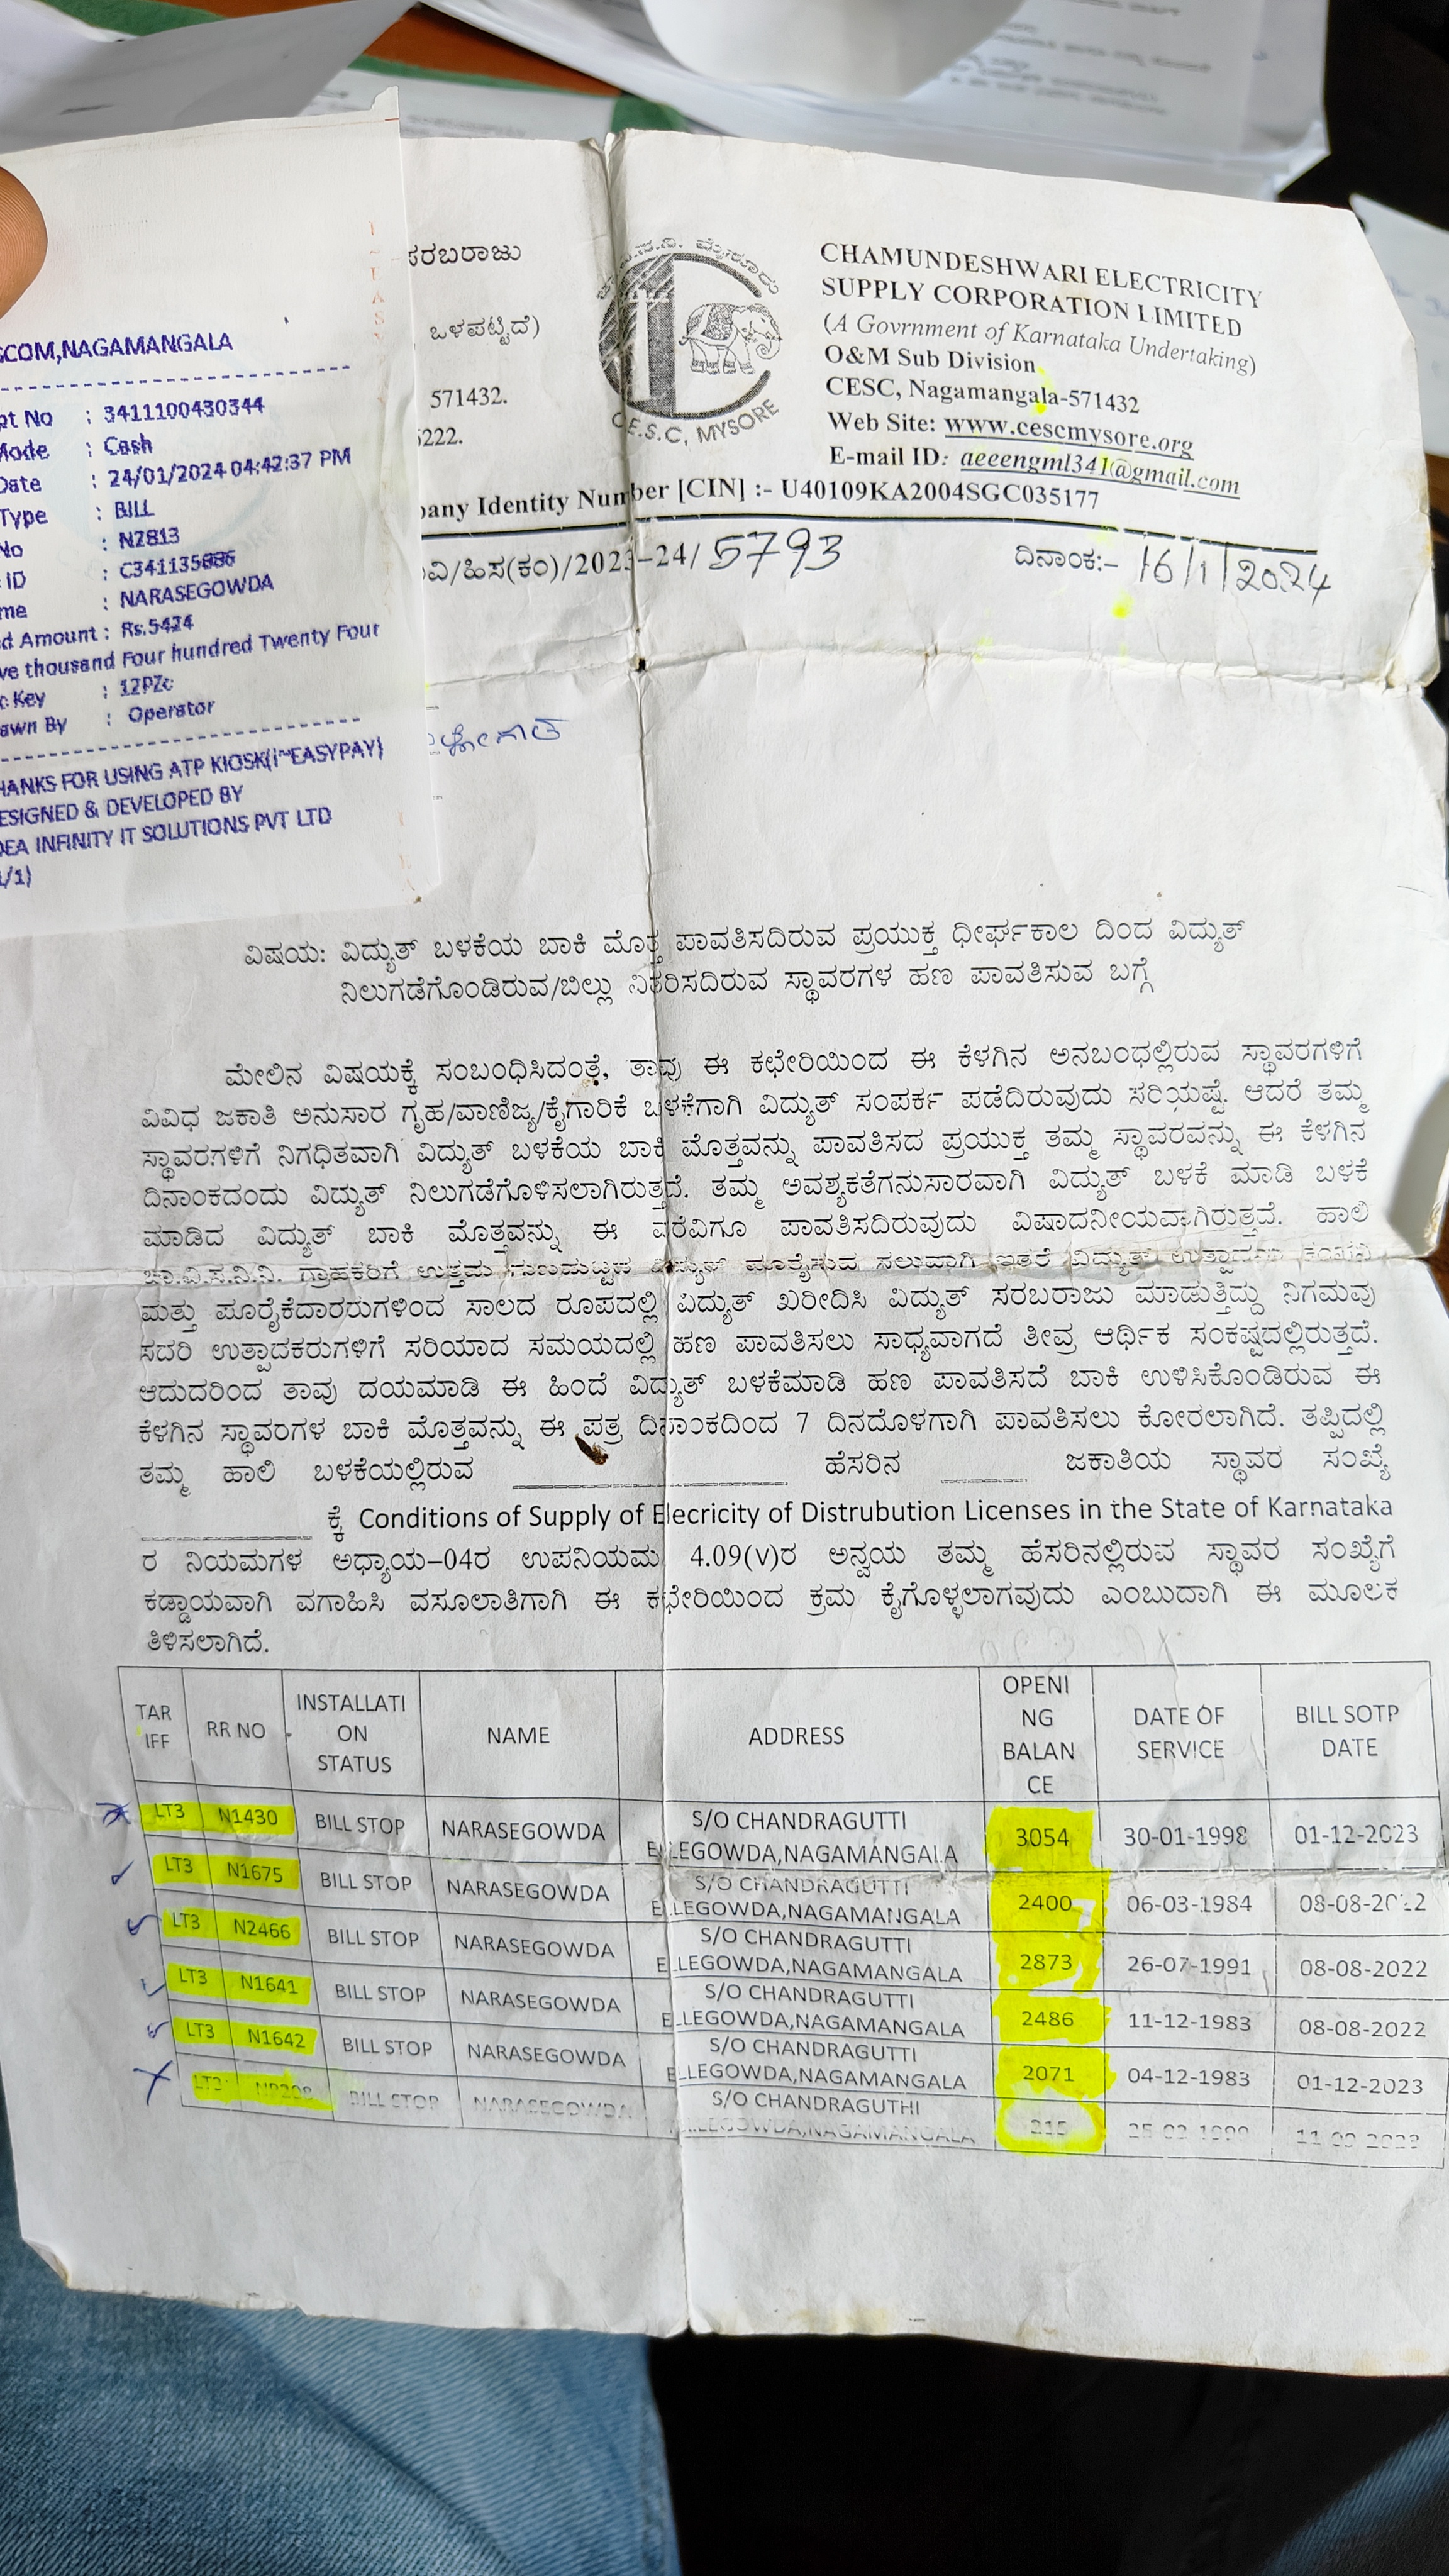 COM,NAGAMANGALA
pt No : 3411100430344
Mode : Cash
Date : 24/01/2024 04:42:37 PM
Type : BILL
No : N2813
ID : C341135886
me : NARASEGOWDA
d Amount : Rs.5424
ve thousand Four hundred Twenty Four
c Key : 12PZc
awn By : Operator
HANKS FOR USING ATP KIOSK(i~EASYPAY)
ESIGNED & DEVELOPED BY
DEA INFINITY IT SOLUTIONS PVT LTD
/1)
ಸರಬರಾಜು
ಒಳಪಟ್ಟಿದೆ)
571432.
222.
C.E.S.C, MYSORE
CHAMUNDESHWARI ELECTRICITY
SUPPLY CORPORATION LIMITED
(A Govrnment of Karnataka Undertaking)
O&M Sub Division
CESC, Nagamangala-571432
Web Site: www.cescmysore.org
E-mail ID: aeeengml341@gmail.com
pany Identity Number [CIN] :- U40109KA2004SGC035177
ವಿ/ಹಿಸ(ಕಂ)/2023-24/ 5793 ದಿನಾಂಕ:- 16/1/2024
ವಿಷಯ: ವಿದ್ಯುತ್ ಬಳಕೆಯ ಬಾಕಿ ಮೊತ್ತ ಪಾವತಿಸದಿರುವ ಪ್ರಯುಕ್ತ ಧೀರ್ಘಕಾಲ ದಿಂದ ವಿದ್ಯುತ್
ನಿಲುಗಡೆಗೊಂಡಿರುವ/ಬಿಲ್ಲು ವಿತರಿಸದಿರುವ ಸ್ಥಾವರಗಳ ಹಣ ಪಾವತಿಸುವ ಬಗ್ಗೆ
ಮೇಲಿನ ವಿಷಯಕ್ಕೆ ಸಂಬಂಧಿಸಿದಂತೆ, ತಾವು ಈ ಕಛೇರಿಯಿಂದ ಈ ಕೆಳಗಿನ ಅನಬಂಧಲ್ಲಿರುವ ಸ್ಥಾವರಗಳಿಗೆ
ವಿವಿಧ ಜಕಾತಿ ಅನುಸಾರ ಗೃಹ/ವಾಣಿಜ್ಯ/ಕೈಗಾರಿಕೆ ಬಳಕೆಗಾಗಿ ವಿದ್ಯುತ್ ಸಂಪರ್ಕ ಪಡೆದಿರುವುದು ಸರಿಯಷ್ಟೆ. ಆದರೆ ತಮ್ಮ
ಸ್ಥಾವರಗಳಿಗೆ ನಿಗಧಿತವಾಗಿ ವಿದ್ಯುತ್ ಬಳಕೆಯ ಬಾಕಿ ಮೊತ್ತವನ್ನು ಪಾವತಿಸದ ಪ್ರಯುಕ್ತ ತಮ್ಮ ಸ್ಥಾವರವನ್ನು ಈ ಕೆಳಗಿನ
ದಿನಾಂಕದಂದು ವಿದ್ಯುತ್ ನಿಲುಗಡೆಗೊಳಿಸಲಾಗಿರುತ್ತದೆ. ತಮ್ಮ ಅವಶ್ಯಕತೆಗನುಸಾರವಾಗಿ ವಿದ್ಯುತ್ ಬಳಕೆ ಮಾಡಿ ಬಳಕೆ
ಮಾಡಿದ ವಿದ್ಯುತ್ ಬಾಕಿ ಮೊತ್ತವನ್ನು ಈ ವರೆವಿಗೂ ಪಾವತಿಸದಿರುವುದು ವಿಷಾದನೀಯವಾಗಿರುತ್ತದೆ. ಹಾಲಿ
ಚಾ.ವಿ.ಸ.ನಿ.ನಿ. ಗ್ರಾಹಕರಿಗೆ ಉತ್ತಮ ಗುಣಮಟ್ಟದ ವಿದ್ಯುತ್ ಪೂರೈಸುವ ಸಲುವಾಗಿ ಇತರೆ ವಿದ್ಯುತ್ ಉತ್ಪಾದನಾ ಕಂಪನಿ
ಮತ್ತು ಪೂರೈಕೆದಾರರುಗಳಿಂದ ಸಾಲದ ರೂಪದಲ್ಲಿ ವಿದ್ಯುತ್ ಖರೀದಿಸಿ ವಿದ್ಯುತ್ ಸರಬರಾಜು ಮಾಡುತ್ತಿದ್ದು ನಿಗಮವು
ಸದರಿ ಉತ್ಪಾದಕರುಗಳಿಗೆ ಸರಿಯಾದ ಸಮಯದಲ್ಲಿ ಹಣ ಪಾವತಿಸಲು ಸಾಧ್ಯವಾಗದೆ ತೀವ್ರ ಆರ್ಥಿಕ ಸಂಕಷ್ಟದಲ್ಲಿರುತ್ತದೆ.
ಆದುದರಿಂದ ತಾವು ದಯಮಾಡಿ ಈ ಹಿಂದೆ ವಿದ್ಯುತ್ ಬಳಕೆಮಾಡಿ ಹಣ ಪಾವತಿಸದೆ ಬಾಕಿ ಉಳಿಸಿಕೊಂಡಿರುವ ಈ
ಕೆಳಗಿನ ಸ್ಥಾವರಗಳ ಬಾಕಿ ಮೊತ್ತವನ್ನು ಈ ಪತ್ರ ದಿನಾಂಕದಿಂದ 7 ದಿನದೊಳಗಾಗಿ ಪಾವತಿಸಲು ಕೋರಲಾಗಿದೆ. ತಪ್ಪಿದಲ್ಲಿ
ತಮ್ಮ ಹಾಲಿ ಬಳಕೆಯಲ್ಲಿರುವ ____________ ಹೆಸರಿನ ______ ಜಕಾತಿಯ ಸ್ಥಾವರ ಸಂಖ್ಯೆ
____________ ಕ್ಕೆ Conditions of Supply of Elecricity of Distrubution Licenses in the State of Karnataka
ರ ನಿಯಮಗಳ ಅಧ್ಯಾಯ-04ರ ಉಪನಿಯಮ 4.09(v)ರ ಅನ್ವಯ ತಮ್ಮ ಹೆಸರಿನಲ್ಲಿರುವ ಸ್ಥಾವರ ಸಂಖ್ಯೆಗೆ
ಕಡ್ಡಾಯವಾಗಿ ವರ್ಗಾಹಿಸಿ ವಸೂಲಾತಿಗಾಗಿ ಈ ಕಛೇರಿಯಿಂದ ಕ್ರಮ ಕೈಗೊಳ್ಳಲಾಗವುದು ಎಂಬುದಾಗಿ ಈ ಮೂಲಕ
ತಿಳಿಸಲಾಗಿದೆ.
TARIFF RR NO INSTALLATION STATUS NAME ADDRESS OPENING BALANCE DATE OF SERVICE BILL SOTP DATE
LT3 N1430 BILL STOP NARASEGOWDA S/O CHANDRAGUTTI ELLEGOWDA,NAGAMANGALA 3054 30-01-1998 01-12-2023
LT3 N1675 BILL STOP NARASEGOWDA S/O CHANDRAGUTTI ELLEGOWDA,NAGAMANGALA 2400 06-03-1984 08-08-2022
LT3 N2466 BILL STOP NARASEGOWDA S/O CHANDRAGUTTI ELLEGOWDA,NAGAMANGALA 2873 26-07-1991 08-08-2022
LT3 N1641 BILL STOP NARASEGOWDA S/O CHANDRAGUTTI ELLEGOWDA,NAGAMANGALA 2486 11-12-1983 08-08-2022
LT3 N1642 BILL STOP NARASEGOWDA S/O CHANDRAGUTTI ELLEGOWDA,NAGAMANGALA 2071 04-12-1983 01-12-2023
LT3 BILL STOP NARASEGOWDA S/O CHANDRAGUTHI ELLEGOWDA,NAGAMANGALA 215